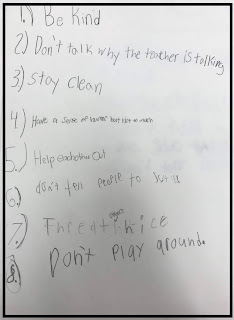 1.) Be Kind
2.) Don't talk why the teacher is talking
3.) Stay Clean
4.) Have a sense of humor but not to much
5.) Help eachother Out
6.) don't tell people to
7.)
8.) Don't Play around.